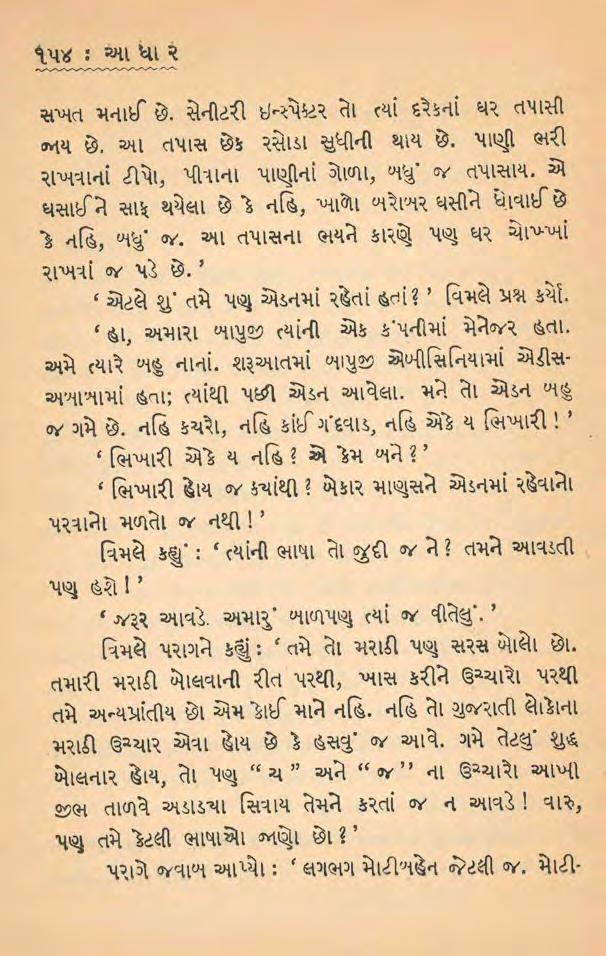 ૧૫૪ : આ ધા ર
સખત મનાઈ છે. સેનીટરી ઇન્સ્પેક્ટર તો ત્યાં દરેકનાં ઘર તપાસી
જાય છે. આ તપાસ છેક રસોડા સુધીની થાય છે. પાણી ભરી
રાખવાનાં ટીપો, પીવાના પાણીનાં ગોળા, બધું જ તપાસાય. એ
ઘસાઈને સાફ થયેલા છે કે નહિ, ખાળો બરોબર ઘસીને ધોવાઈ છે
કે નહિ, બધું જ. આ તપાસના ભયને કારણે પણ ઘર ચોખ્ખાં
રાખવાં જ પડે છે.’
‘ એટલે શું તમે પણ એડનમાં રહેતાં હતાં? ’ વિમલે પ્રશ્ન કર્યો.
‘ હા, અમારા બાપુજી ત્યાંની એક કંપનીમાં મેનેજર હતા.
અમે ત્યારે બહુ નાનાં. શરૂઆતમાં બાપુજી એબીસિનિયામાં એડીસ-
અબાબામાં હતા; ત્યાંથી પછી એડન આવેલા. મને તો એડન બહુ
જ ગમે છે. નહિ કચરો, નહિ કાંઈ ગંદવાડ, નહિ એકે ય ભિખારી! ’
‘ ભિખારી એકે ય નહિ? એ કેમ બને?’
‘ ભિખારી હોય જ ક્યાંથી? બેકાર માણસને એડનમાં રહેવાનો
પરવાનો મળતો જ નથી!’
વિમલે કહ્યું : ‘ ત્યાંની ભાષા તો જુદી જ ને? તમને આવડતી
પણ હશે! ’
‘ જરૂર આવડે. અમારું બાળપણ ત્યાં જ વીતેલું. ’
વિમલે પરાગને કહ્યું : ‘ તમે તો મરાઠી પણ સરસ બોલો છો.
તમારી મરાઠી બોલવાની રીત પરથી, ખાસ કરીને ઉચ્ચારો પરથી
તમે અન્યપ્રાંતીય છો એમ કોઈ માને નહિ. નહિ તો ગુજરાતી લોકોના
મરાઠી ઉચ્ચાર એવા હોય છે કે હસવું જ આવે. ગમે તેટલું શુદ્ધ
બોલનાર હોય, તો પણ “ ચ ” અને “ જ ” ના ઉચ્ચારો આખી
જીભ તાળવે અડાડયા સિવાય તેમને કરતાં જ ન આવડે! વારુ,
પણ તમે કેટલી ભાષાઓ જાણો છો?’
પરાગે જવાબ આપ્યો : ‘ લગભગ મોટીબહેન જેટલી જ. મોટી-